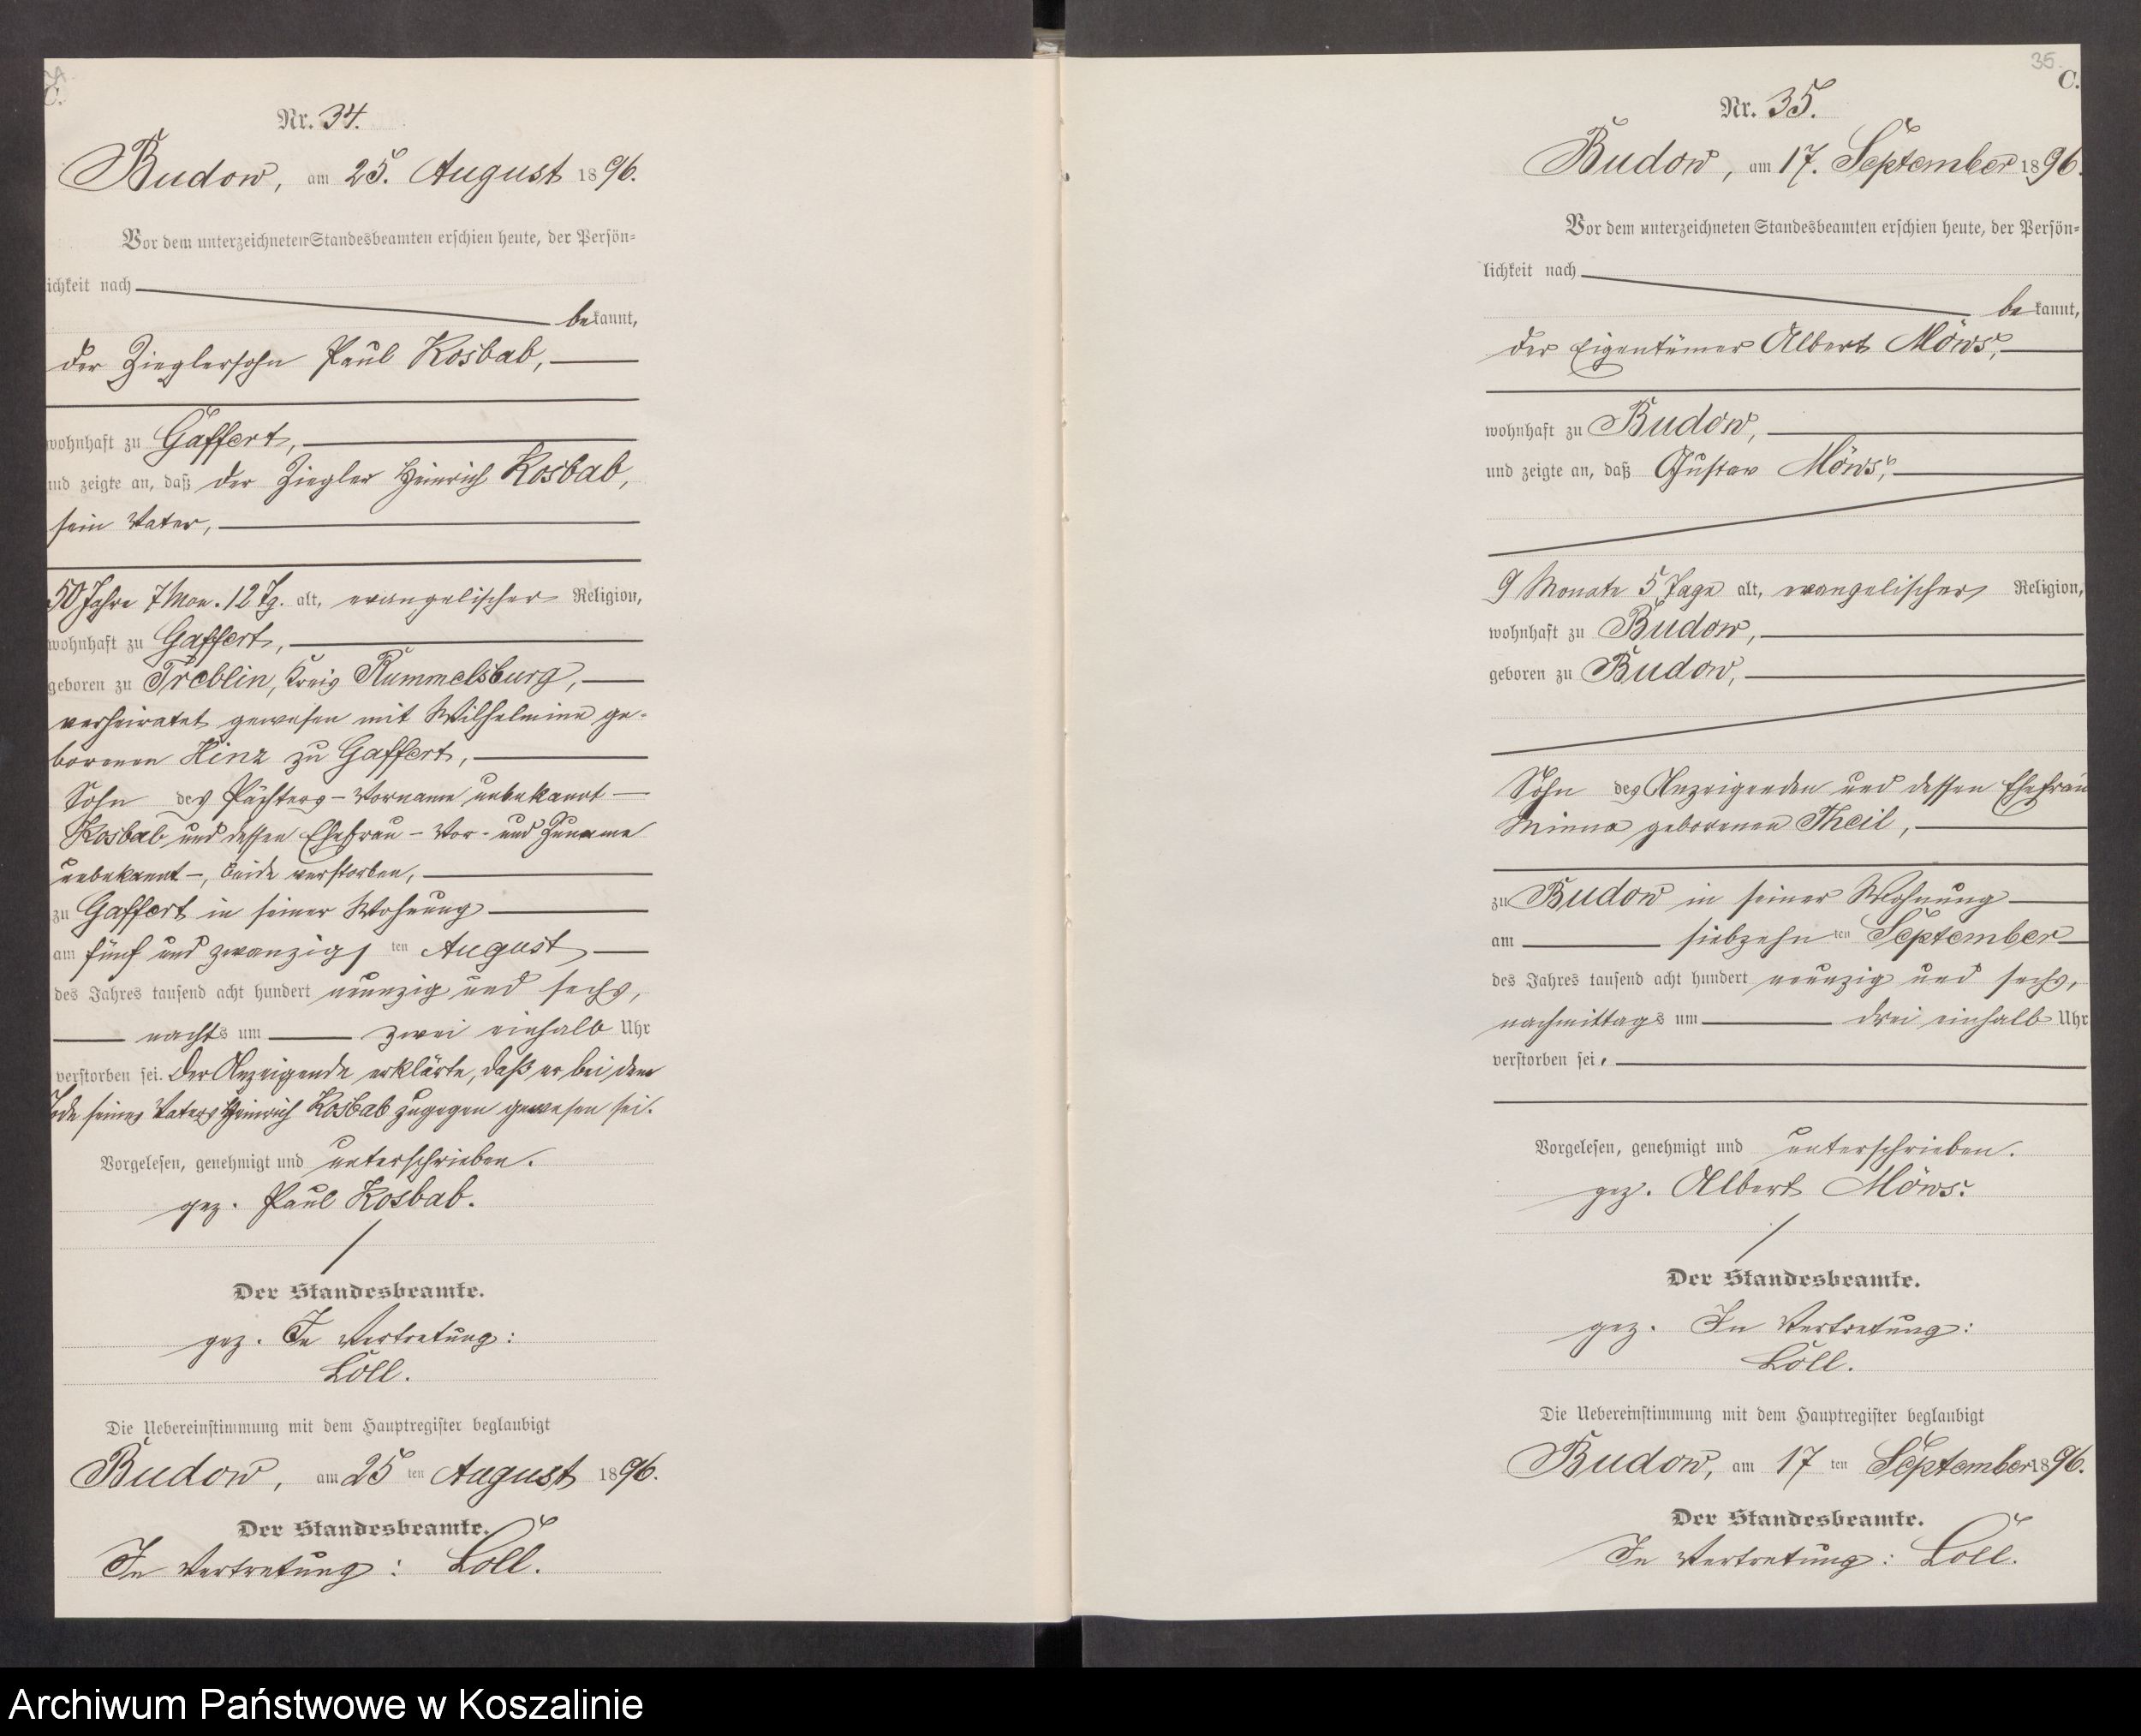 C.
Nr. 34.
Budow, am 25. August 1896.
Vor dem unterzeichneten Standesbeamten erschien heute, der Persön-
lichkeit nach
bekannt,
der Zieglersohn Paul Kosbab,
wohnhaft zu Gaffert,
und zeigte an, daß der Ziegler Heinrich Kosbab,
sein Vater,
50 Jahre 7 Mon. 12 Tg. alt, evangelischer Religion,
wohnhaft zu Gaffert,
geboren zu Treblin, Kreis Rummelsburg,
verheiratet gewesen mit Wilhelmine ge-
borenen Hinz zu Gaffert,
Sohn des Pächters – Vorname unbekannt –
Kosbab und dessen Ehefrau – Vor- und Zuname
unbekannt –, beide verstorben,
zu Gaffert in seiner Wohnung
am fünf und zwanzigsten August
des Jahres tausend acht hundert neunzig und sechs,
nachts um zwei einhalb Uhr
verstorben sei. Der Anzeigende erklärte, daß er bei dem
Tode seines Vaters Heinrich Kosbab zugegen gewesen sei.
Vorgelesen, genehmigt und unterschrieben.
gez. Paul Kosbab.
Der Standesbeamte.
gez. In Vertretung:
Löll.
Die Uebereinstimmung mit dem Hauptregister beglaubigt
Budow, am 25 ten August 1896.
Der Standesbeamte.
In Vertretung: Löll.
35.
C.
Nr. 35.
Budow, am 17. September 1896.
Vor dem unterzeichneten Standesbeamten erschien heute, der Persön-
lichkeit nach
bekannt,
der Eigentümer Albert Möws,
wohnhaft zu Budow,
und zeigte an, daß Gustav Möws,
9 Monate 5 Tage alt, evangelischer Religion,
wohnhaft zu Budow,
geboren zu Budow,
Sohn des Anzeigenden und dessen Ehefrau
Minna geborenen Theil,
zu Budow in seiner Wohnung
am siebzehnten September
des Jahres tausend acht hundert neunzig und sechs,
nachmittags um drei einhalb Uhr
verstorben sei.
Vorgelesen, genehmigt und unterschrieben.
gez. Albert Möws.
Der Standesbeamte.
gez. In Vertretung:
Löll.
Die Uebereinstimmung mit dem Hauptregister beglaubigt
Budow, am 17 ten September 1896.
Der Standesbeamte.
In Vertretung: Löll.
Archiwum Państwowe w Koszalinie